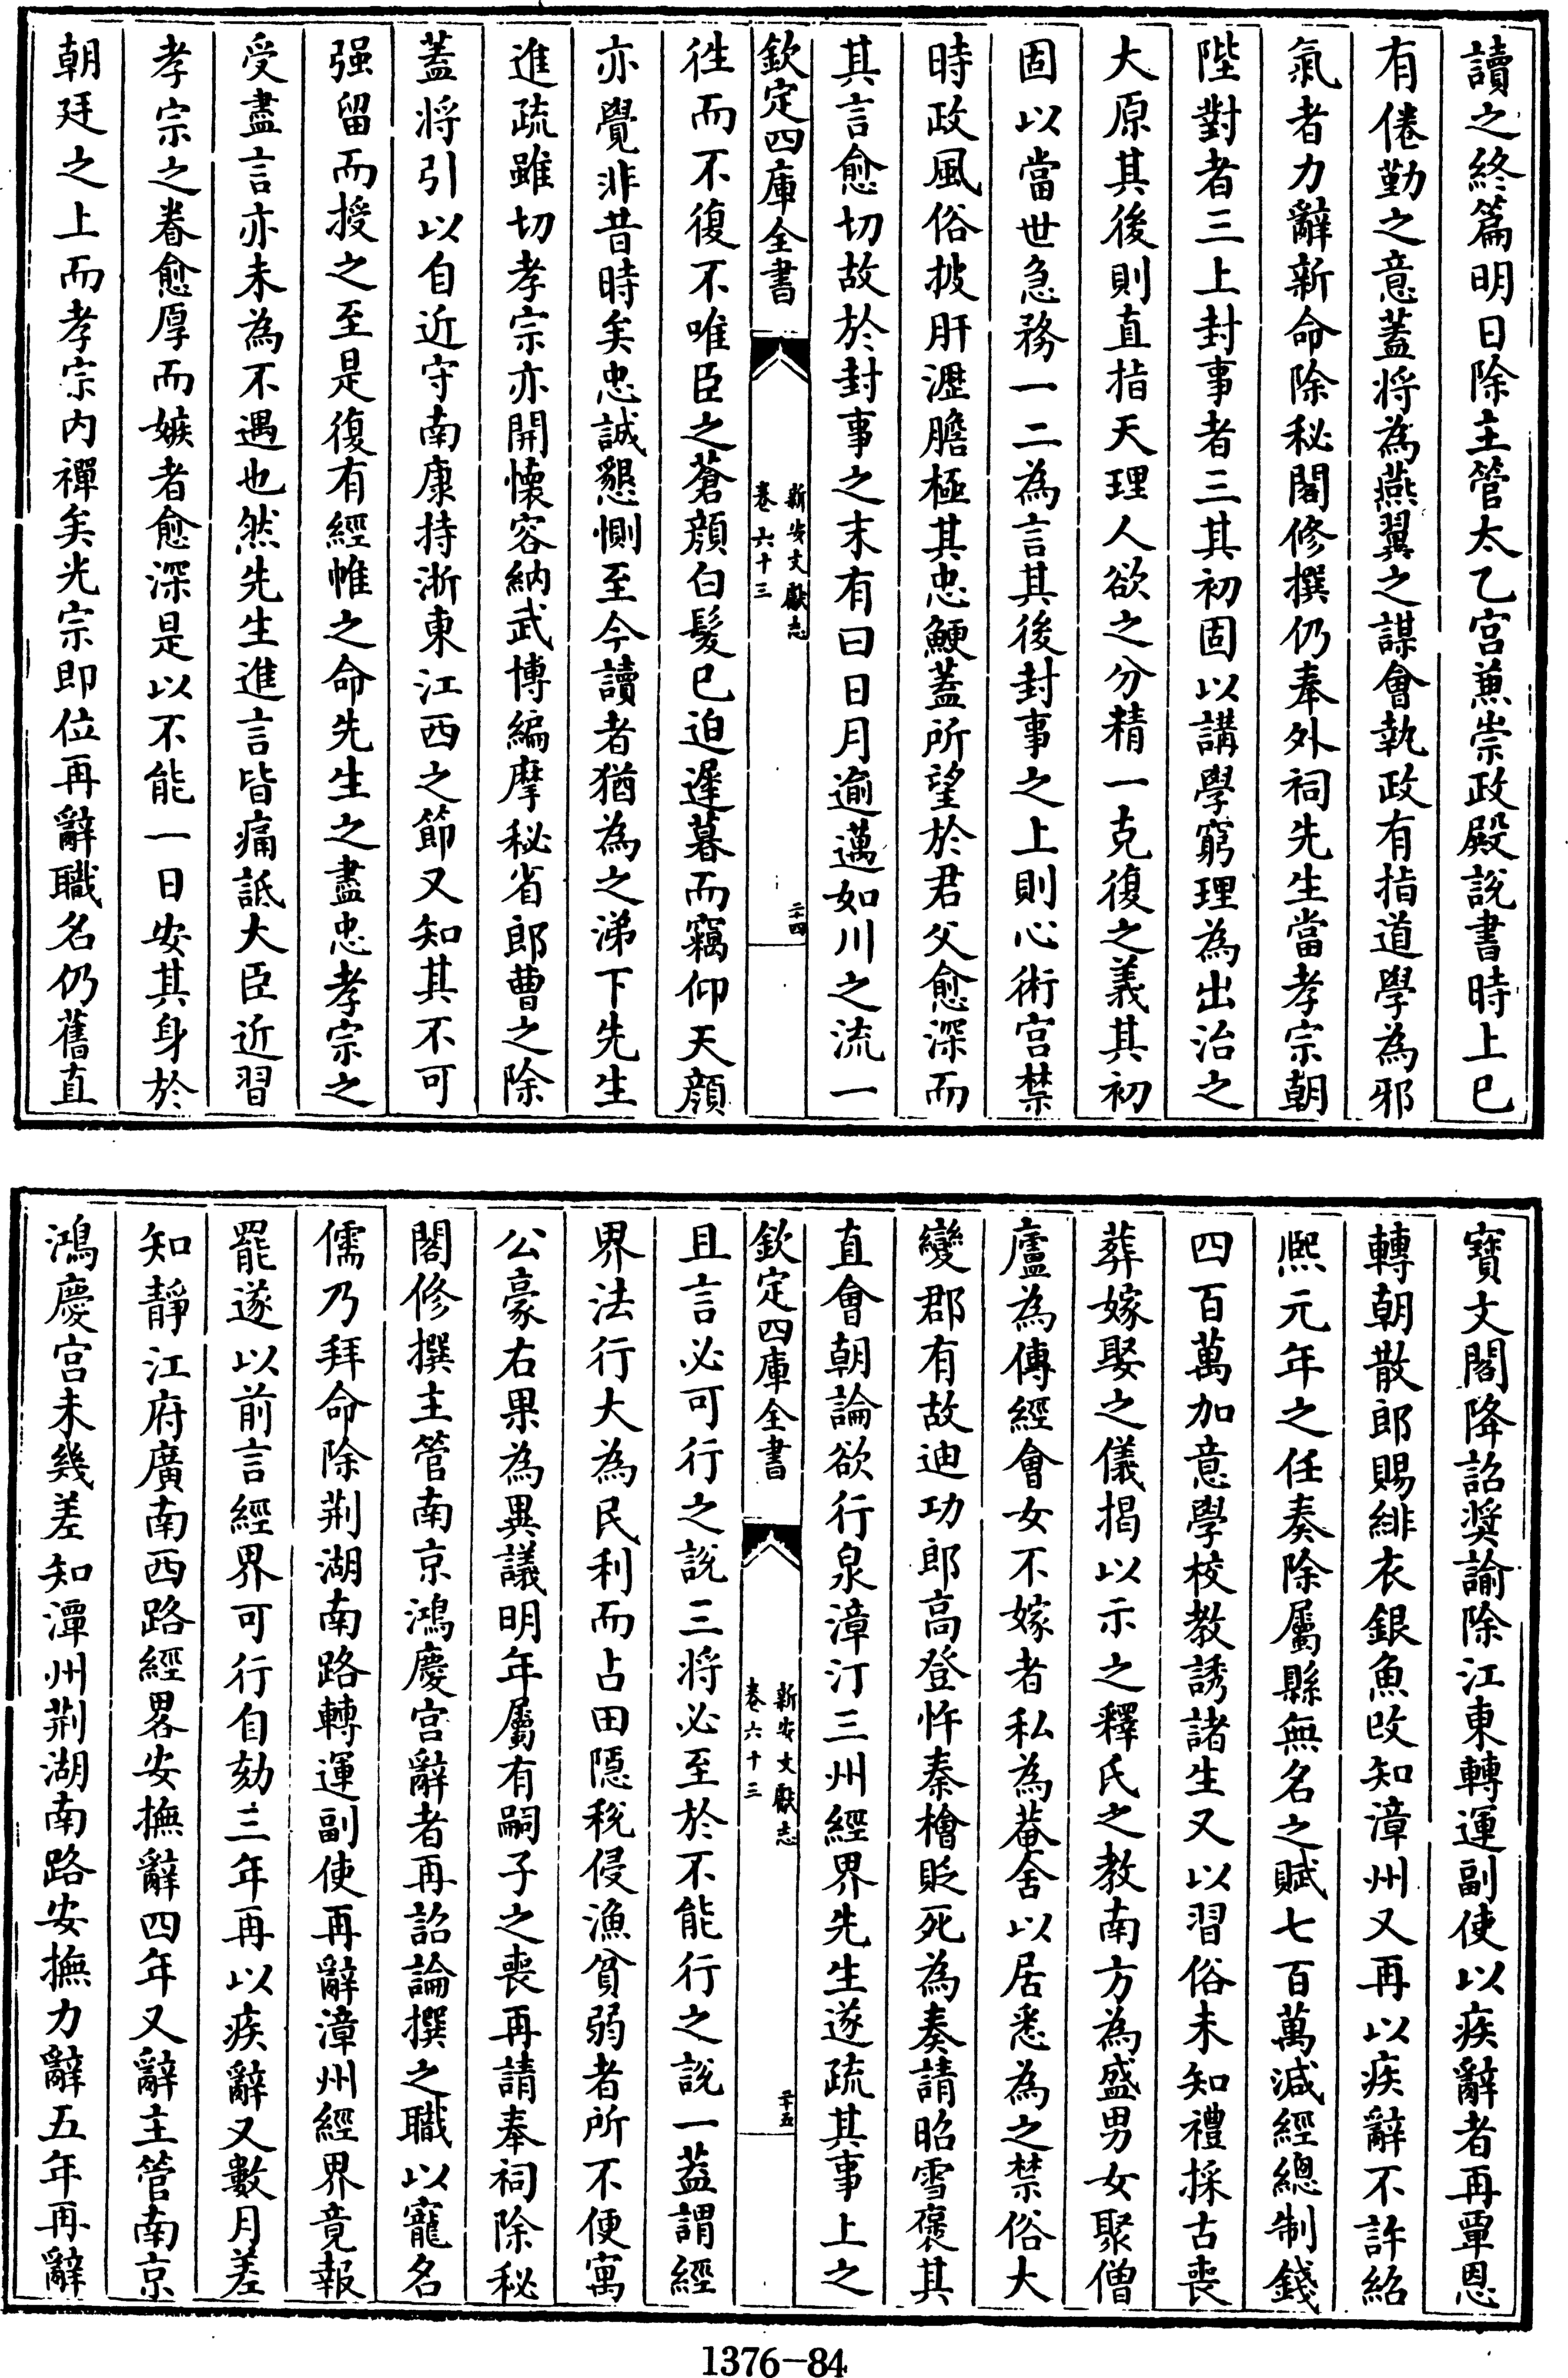 讀之終篇明日除主管太乙宫兼崇政殿說書時上已
有倦勤之意蓋將為燕翼之謀會執政有指道學為邪
氣者力辭新命除秘閣修撰仍奉外祠先生當孝宗朝
陛對者三上封事者三其初固以講學窮理為出治之
大原其後則直指天理人欲之分精一克復之義其初
固以當世急務一二為言其後封事之上則心術宫禁
時政風俗披肝瀝膽極其忠鯁蓋所望於君父愈深而
其言愈切故於封事之末有曰日月逾邁如川之流一
欽定四庫全書
新安文獻志
卷六十三
二十四
徃而不復不唯臣之蒼顔白髪已迫遲暮而竊仰天顔
亦覺非昔時矣忠誠懇惻至今讀者猶為之涕下先生
進疏雖切孝宗亦開懐容納武博編摩秘省郎曹之除
蓋將引以自近守南康持浙東江西之節又知其不可
强留而授之至是復有經帷之命先生之盡忠孝宗之
受盡言亦未為不遇也然先生進言皆痛詆大臣近習
孝宗之眷愈厚而嫉者愈深是以不能一日安其身於
朝廷之上而孝宗内禪矣光宗即位再辭職名仍舊直
寶文閣降詔奬諭除江東轉運副使以疾辭者再覃恩
轉朝散郎賜緋衣銀魚改知漳州又再以疾辭不許紹
熙元年之任奏除屬縣無名之賦七百萬減經總制錢
四百萬加意學校教誘諸生又以習俗未知禮採古喪
葬嫁娶之儀揭以示之釋氏之教南方為盛男女聚僧
廬為傳經會女不嫁者私為菴舍以居悉為之禁俗大
變郡有故迪功郎高登忤秦檜貶死為奏請昭雪褒其
直會朝論欲行泉漳汀三州經界先生遂疏其事上之
欽定四庫全書
新安文獻志
卷六十三
二十五
且言必可行之說三將必至於不能行之說一蓋謂經
界法行大為民利而占田隱稅侵漁貧弱者所不便寓
公豪右果為異議明年屬有嗣子之喪再請奉祠除秘
閣修撰主管南京鴻慶宫辭者再詔論撰之職以寵名
儒乃拜命除荆湖南路轉運副使再辭漳州經界竟報
罷遂以前言經界可行自劾三年再以疾辭又數月差
知靜江府廣南西路經畧安撫辭四年又辭主管南京
鴻慶宫未幾差知潭州荆湖南路安撫力辭五年再辭
1376-84